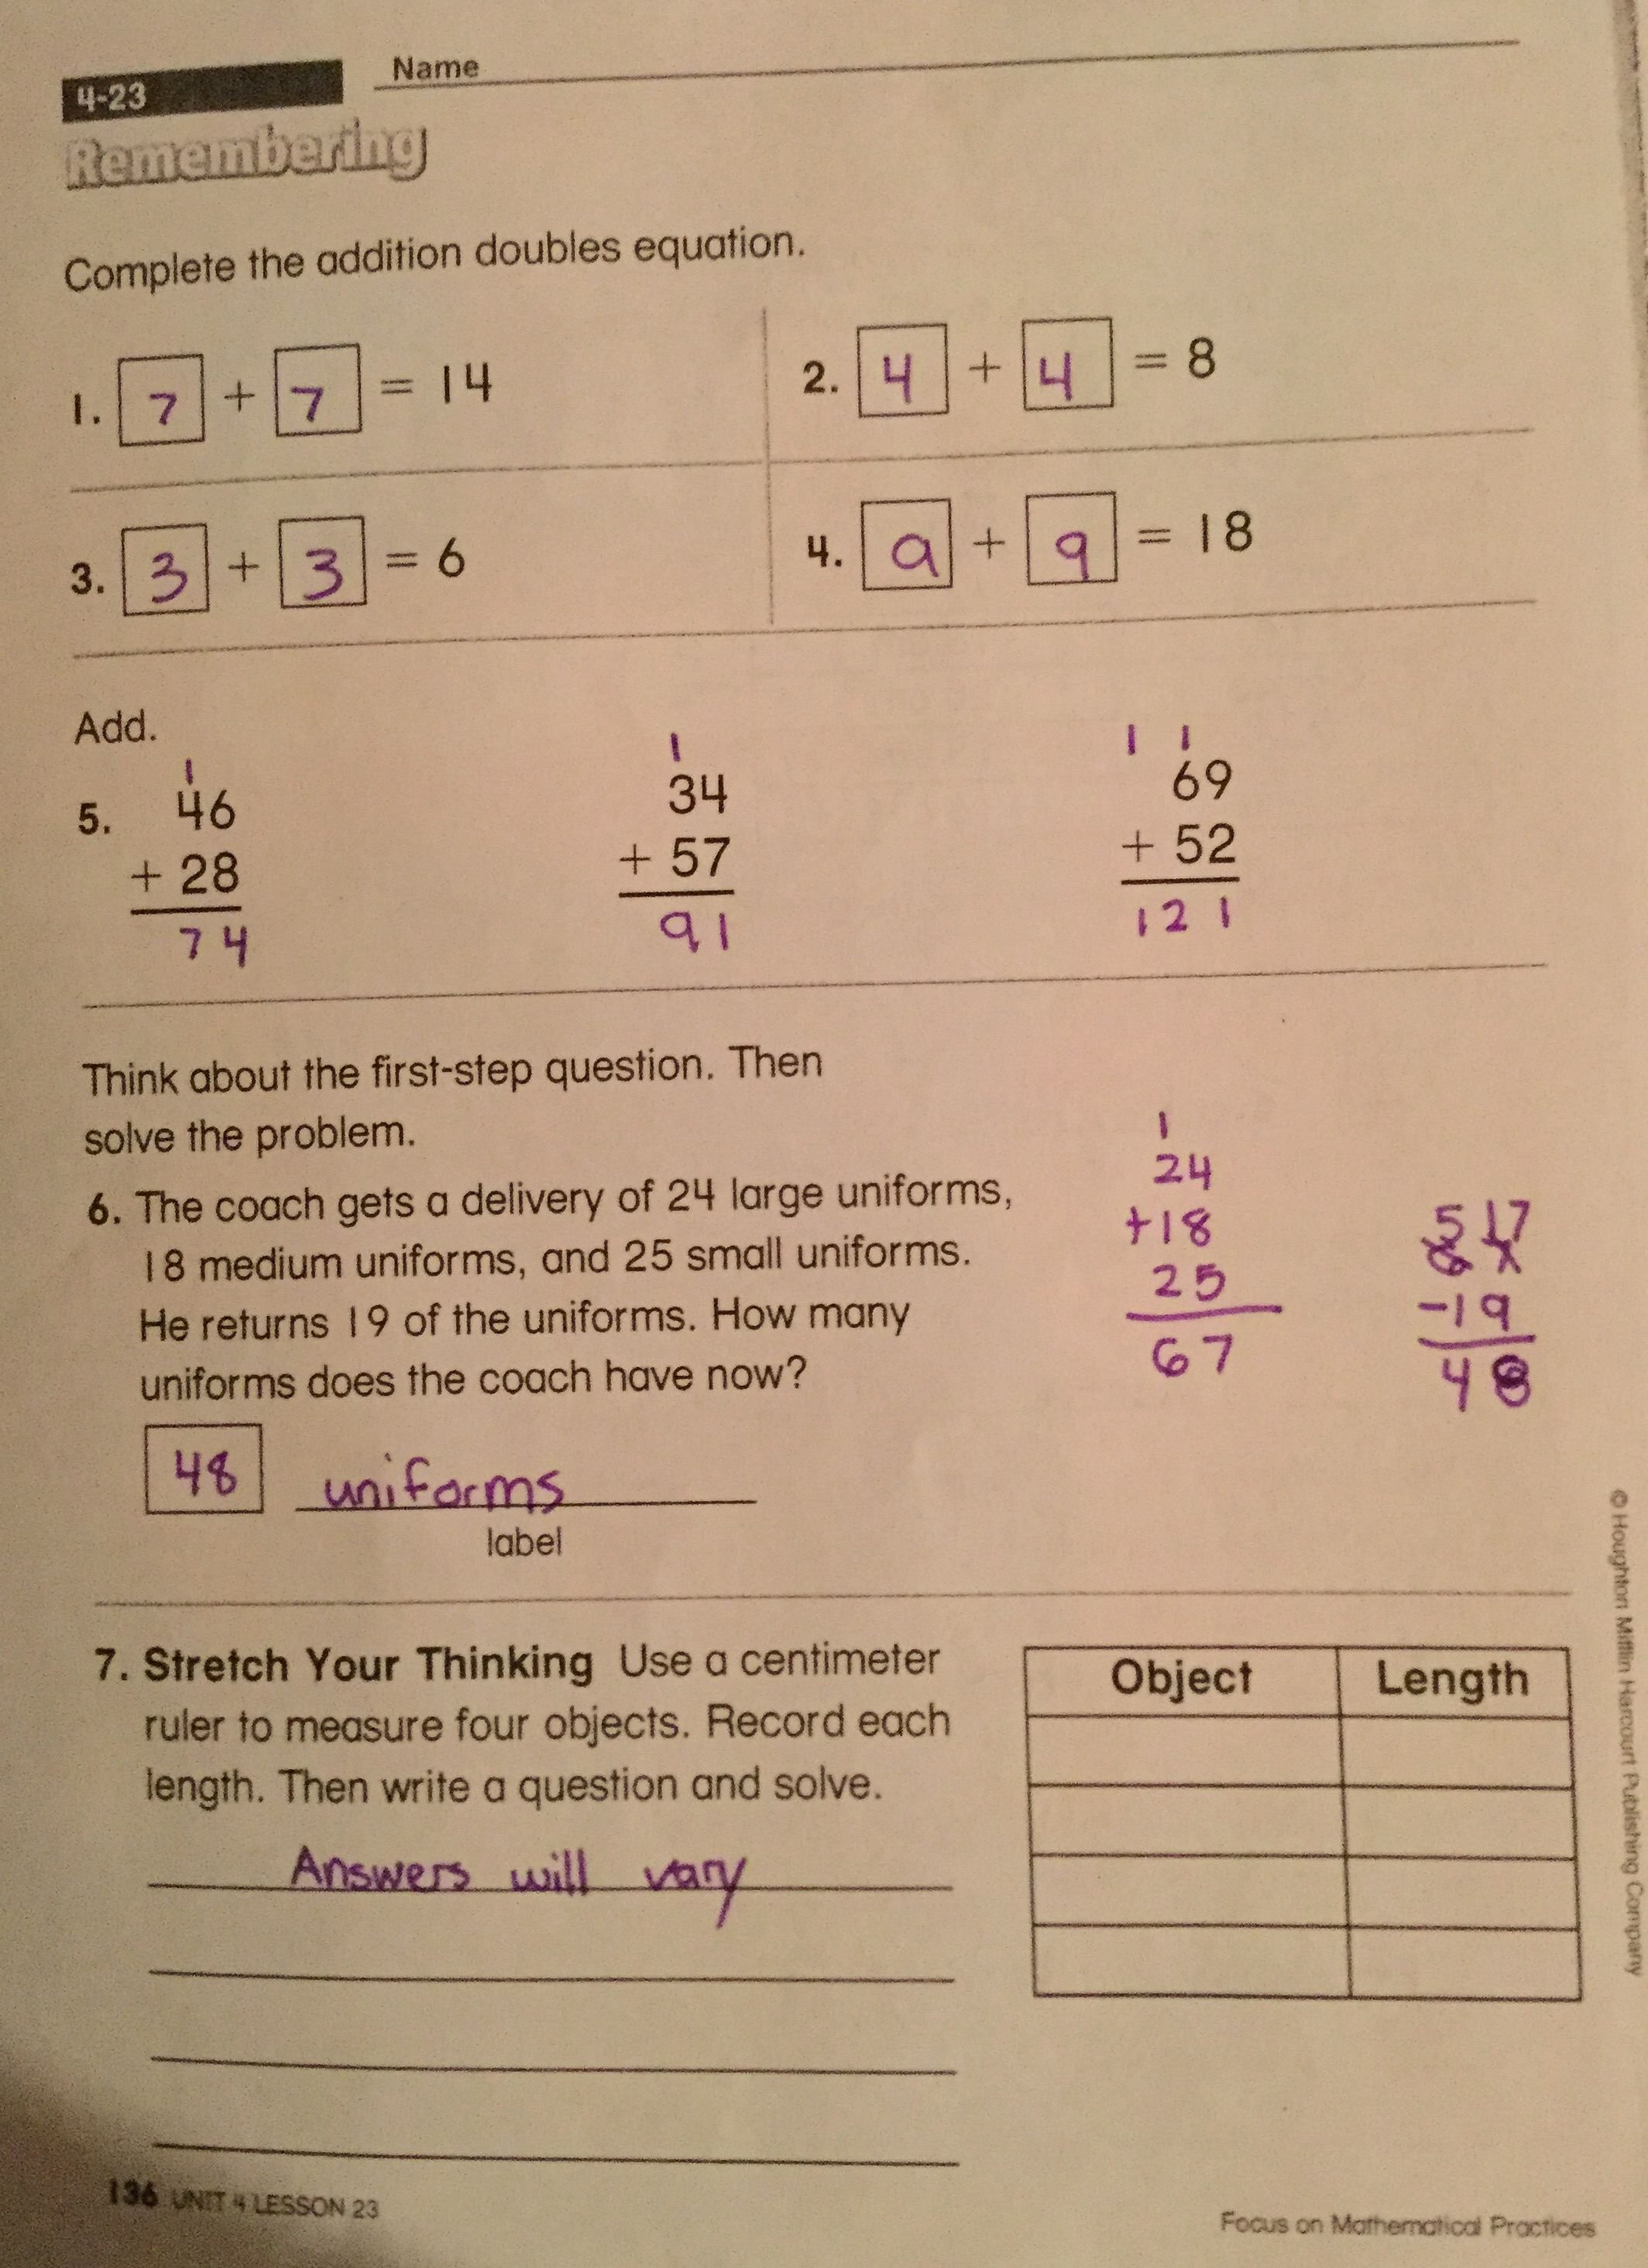 Name
4-23
Remembering
Complete the addition doubles equation.
1. 7 + 7 = 14
2. 4 + 4 = 8
3. 3 + 3 = 6
4. 9 + 9 = 18
Add.
1
46
5.
+ 28
74
1
34
+ 57
91
1 1
69
+ 52
121
Think about the first-step question. Then
solve the problem.
6. The coach gets a delivery of 24 large uniforms,
18 medium uniforms, and 25 small uniforms.
He returns 19 of the uniforms. How many
uniforms does the coach have now?
48 uniforms
label
1
24
+18
25
67
5 17
6 7
-19
48
7. Stretch Your Thinking Use a centimeter
ruler to measure four objects. Record each
length. Then write a question and solve.
Answers will vary
Object Length
© Houghton Mifflin Harcourt Publishing Company
136 UNIT 4 LESSON 23
Focus on Mathematical Practices